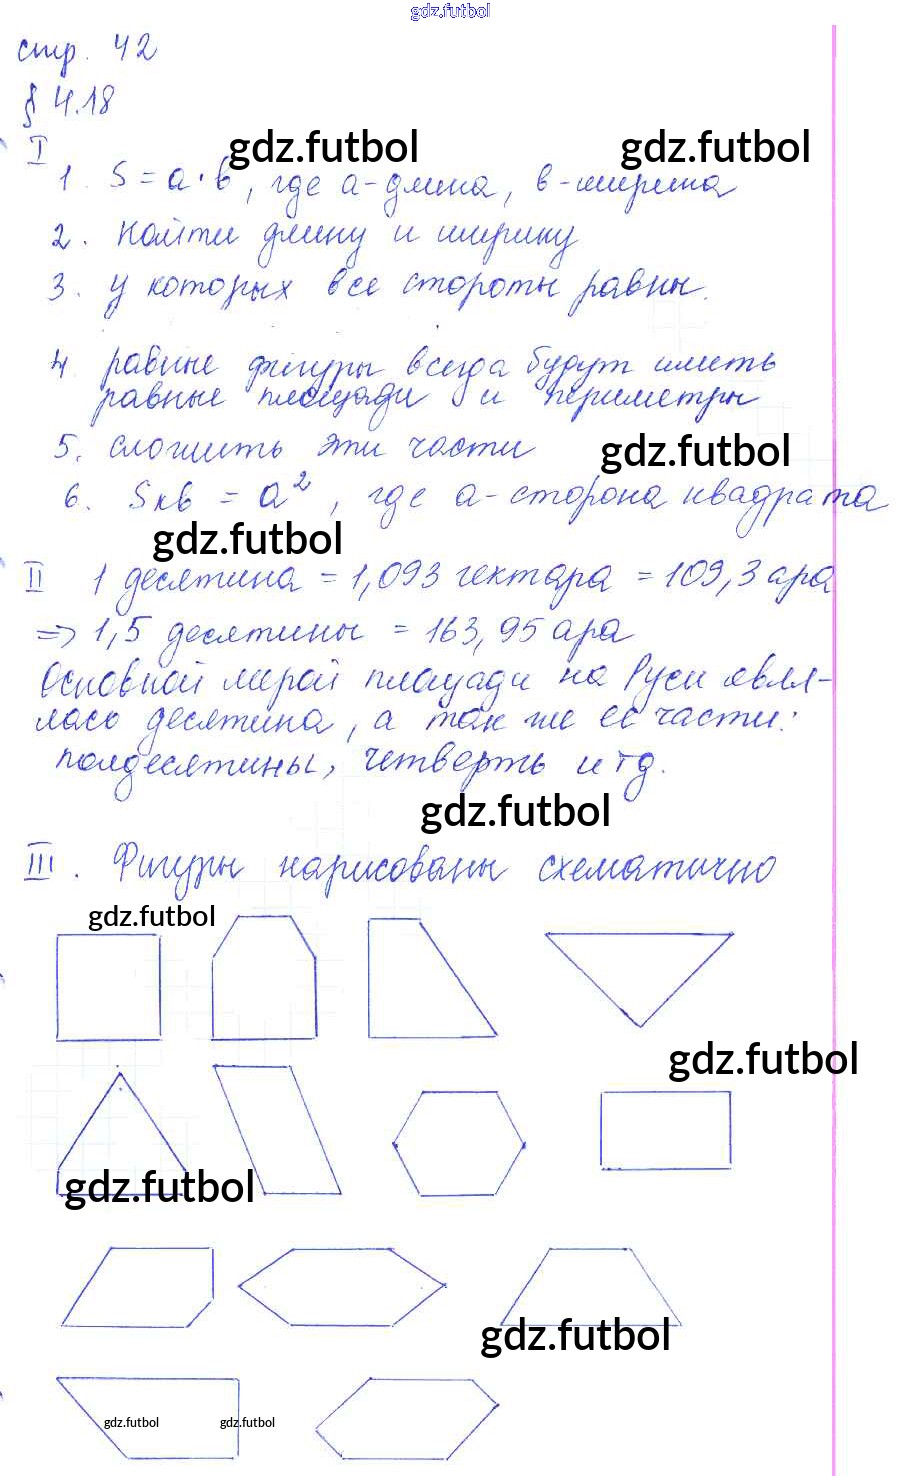 gdz.futbol
стр. 42
§ 4.18
gdz.futbol gdz.futbol
I
1. S = a · b, где a - длина, b - ширина
2. Найти длину и ширину
3. у которых все стороты равны.
4. равные фигуры всегда будут иметь
равные площади и периметры
5. сложить эти части
gdz.futbol
6. Sкв = a², где a - сторона квадрата
gdz.futbol
II 1 десятина = 1,093 гектара = 109,3 ара
=> 1,5 десятины = 163,95 ара
Основной мерой площади на Руси явля-
лась десятина, а так же её части:
полдесятины, четверть и тд.
gdz.futbol
III. Фигуры нарисованы схематично
gdz.futbol
gdz.futbol
gdz.futbol
gdz.futbol
gdz.futbol gdz.futbol